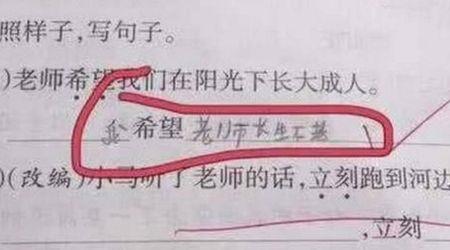 照样子,写句子。
)老师希望我们在阳光下长大成人。
希望老师长生不老
)(改编)小马听了老师的话,立刻跑到河边
,立刻